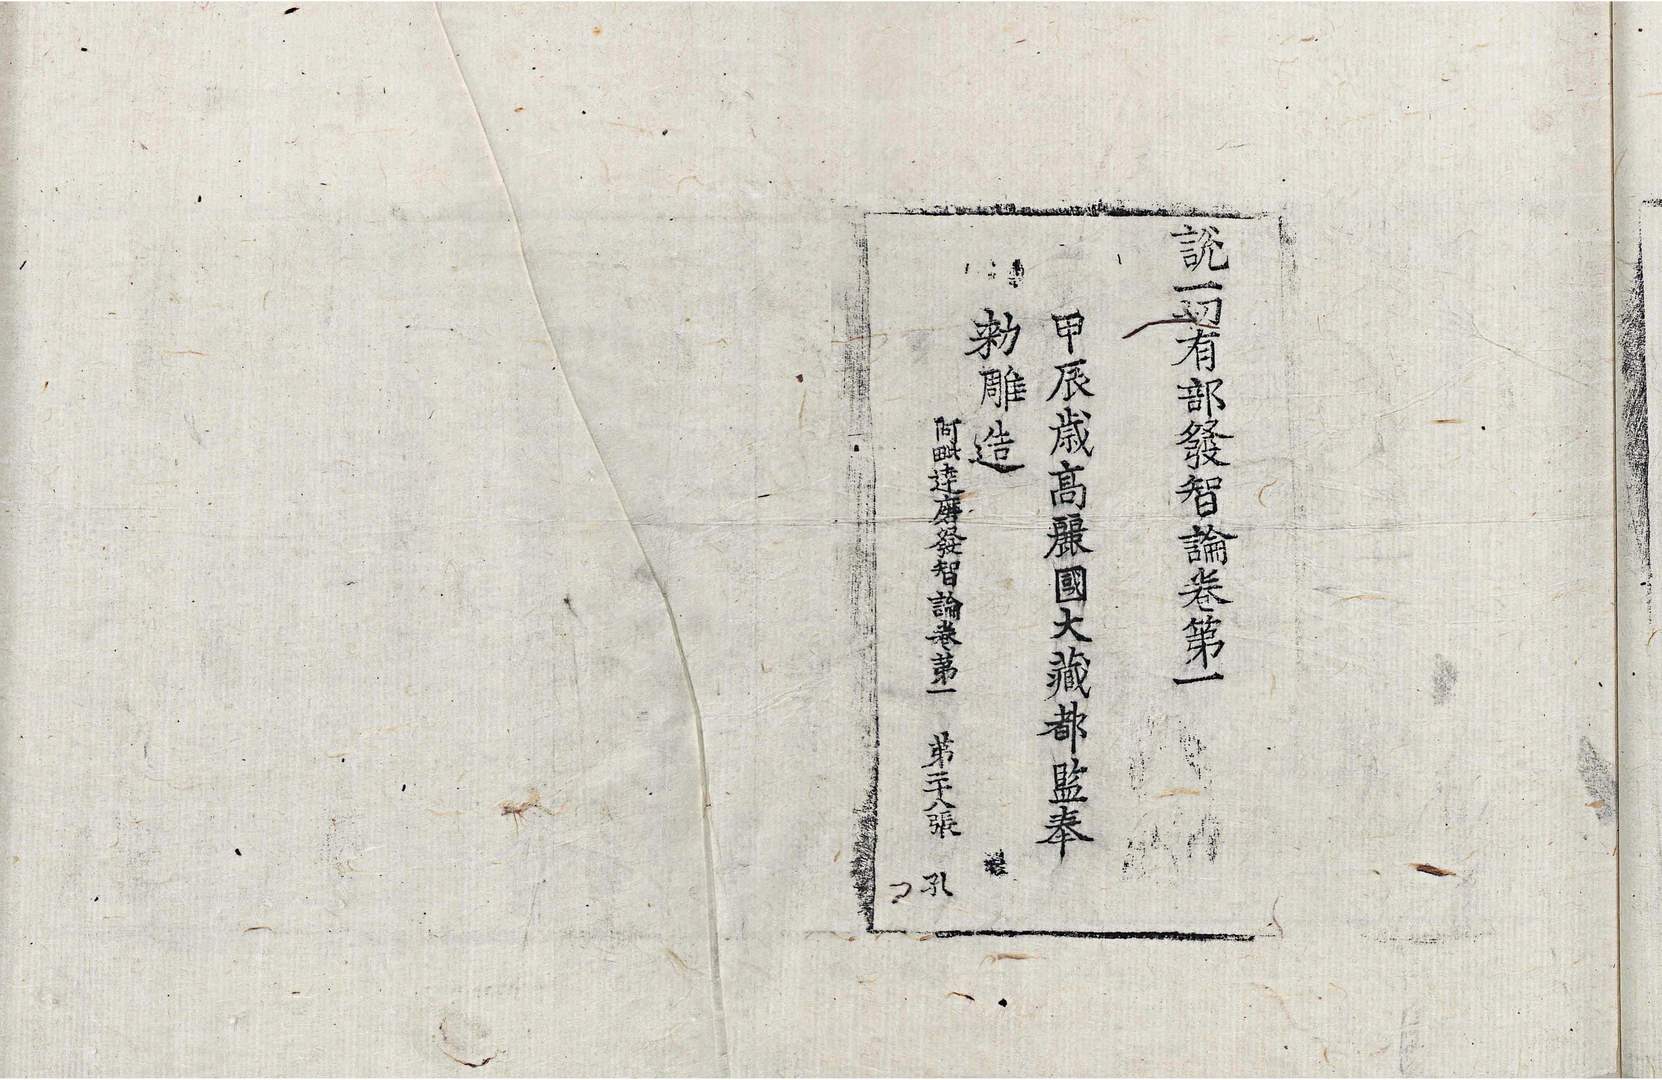 說一切有部發智論卷第一
甲辰歳高麗國大藏都監奉
勑雕造
阿毗達磨發智論卷第一 第二十八張 孔